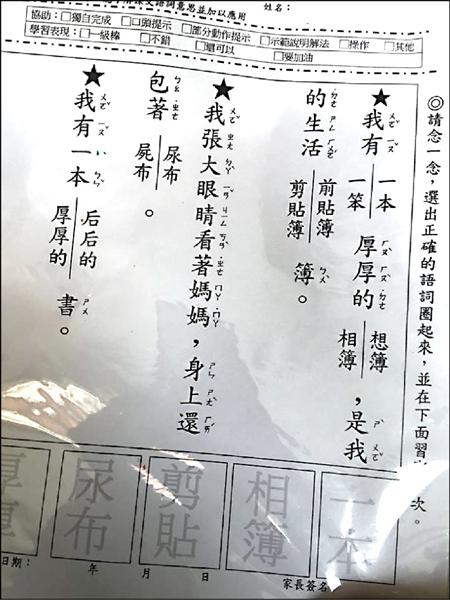 課文語詞意思並加以應用 姓名：
協助：□獨自完成 □口頭提示 □部分動作提示 □示範說明解法 □操作 □其他
學習表現：□一級棒 □不錯 □還可以 □要加油
◎請念一念，選出正確的語詞圈起來，並在下面習 次。
★我有 一本 一笨 厚厚的 想簿 相簿 ，是我
的生活 前貼簿 剪貼簿 簿。
★我張大眼睛看著媽媽，身上還
包著 尿布 屍布 。
★我有一本 后后的 厚厚的 書。
一本
相簿
剪貼
尿布
厚厚
日期： 年 月 日 家長簽名